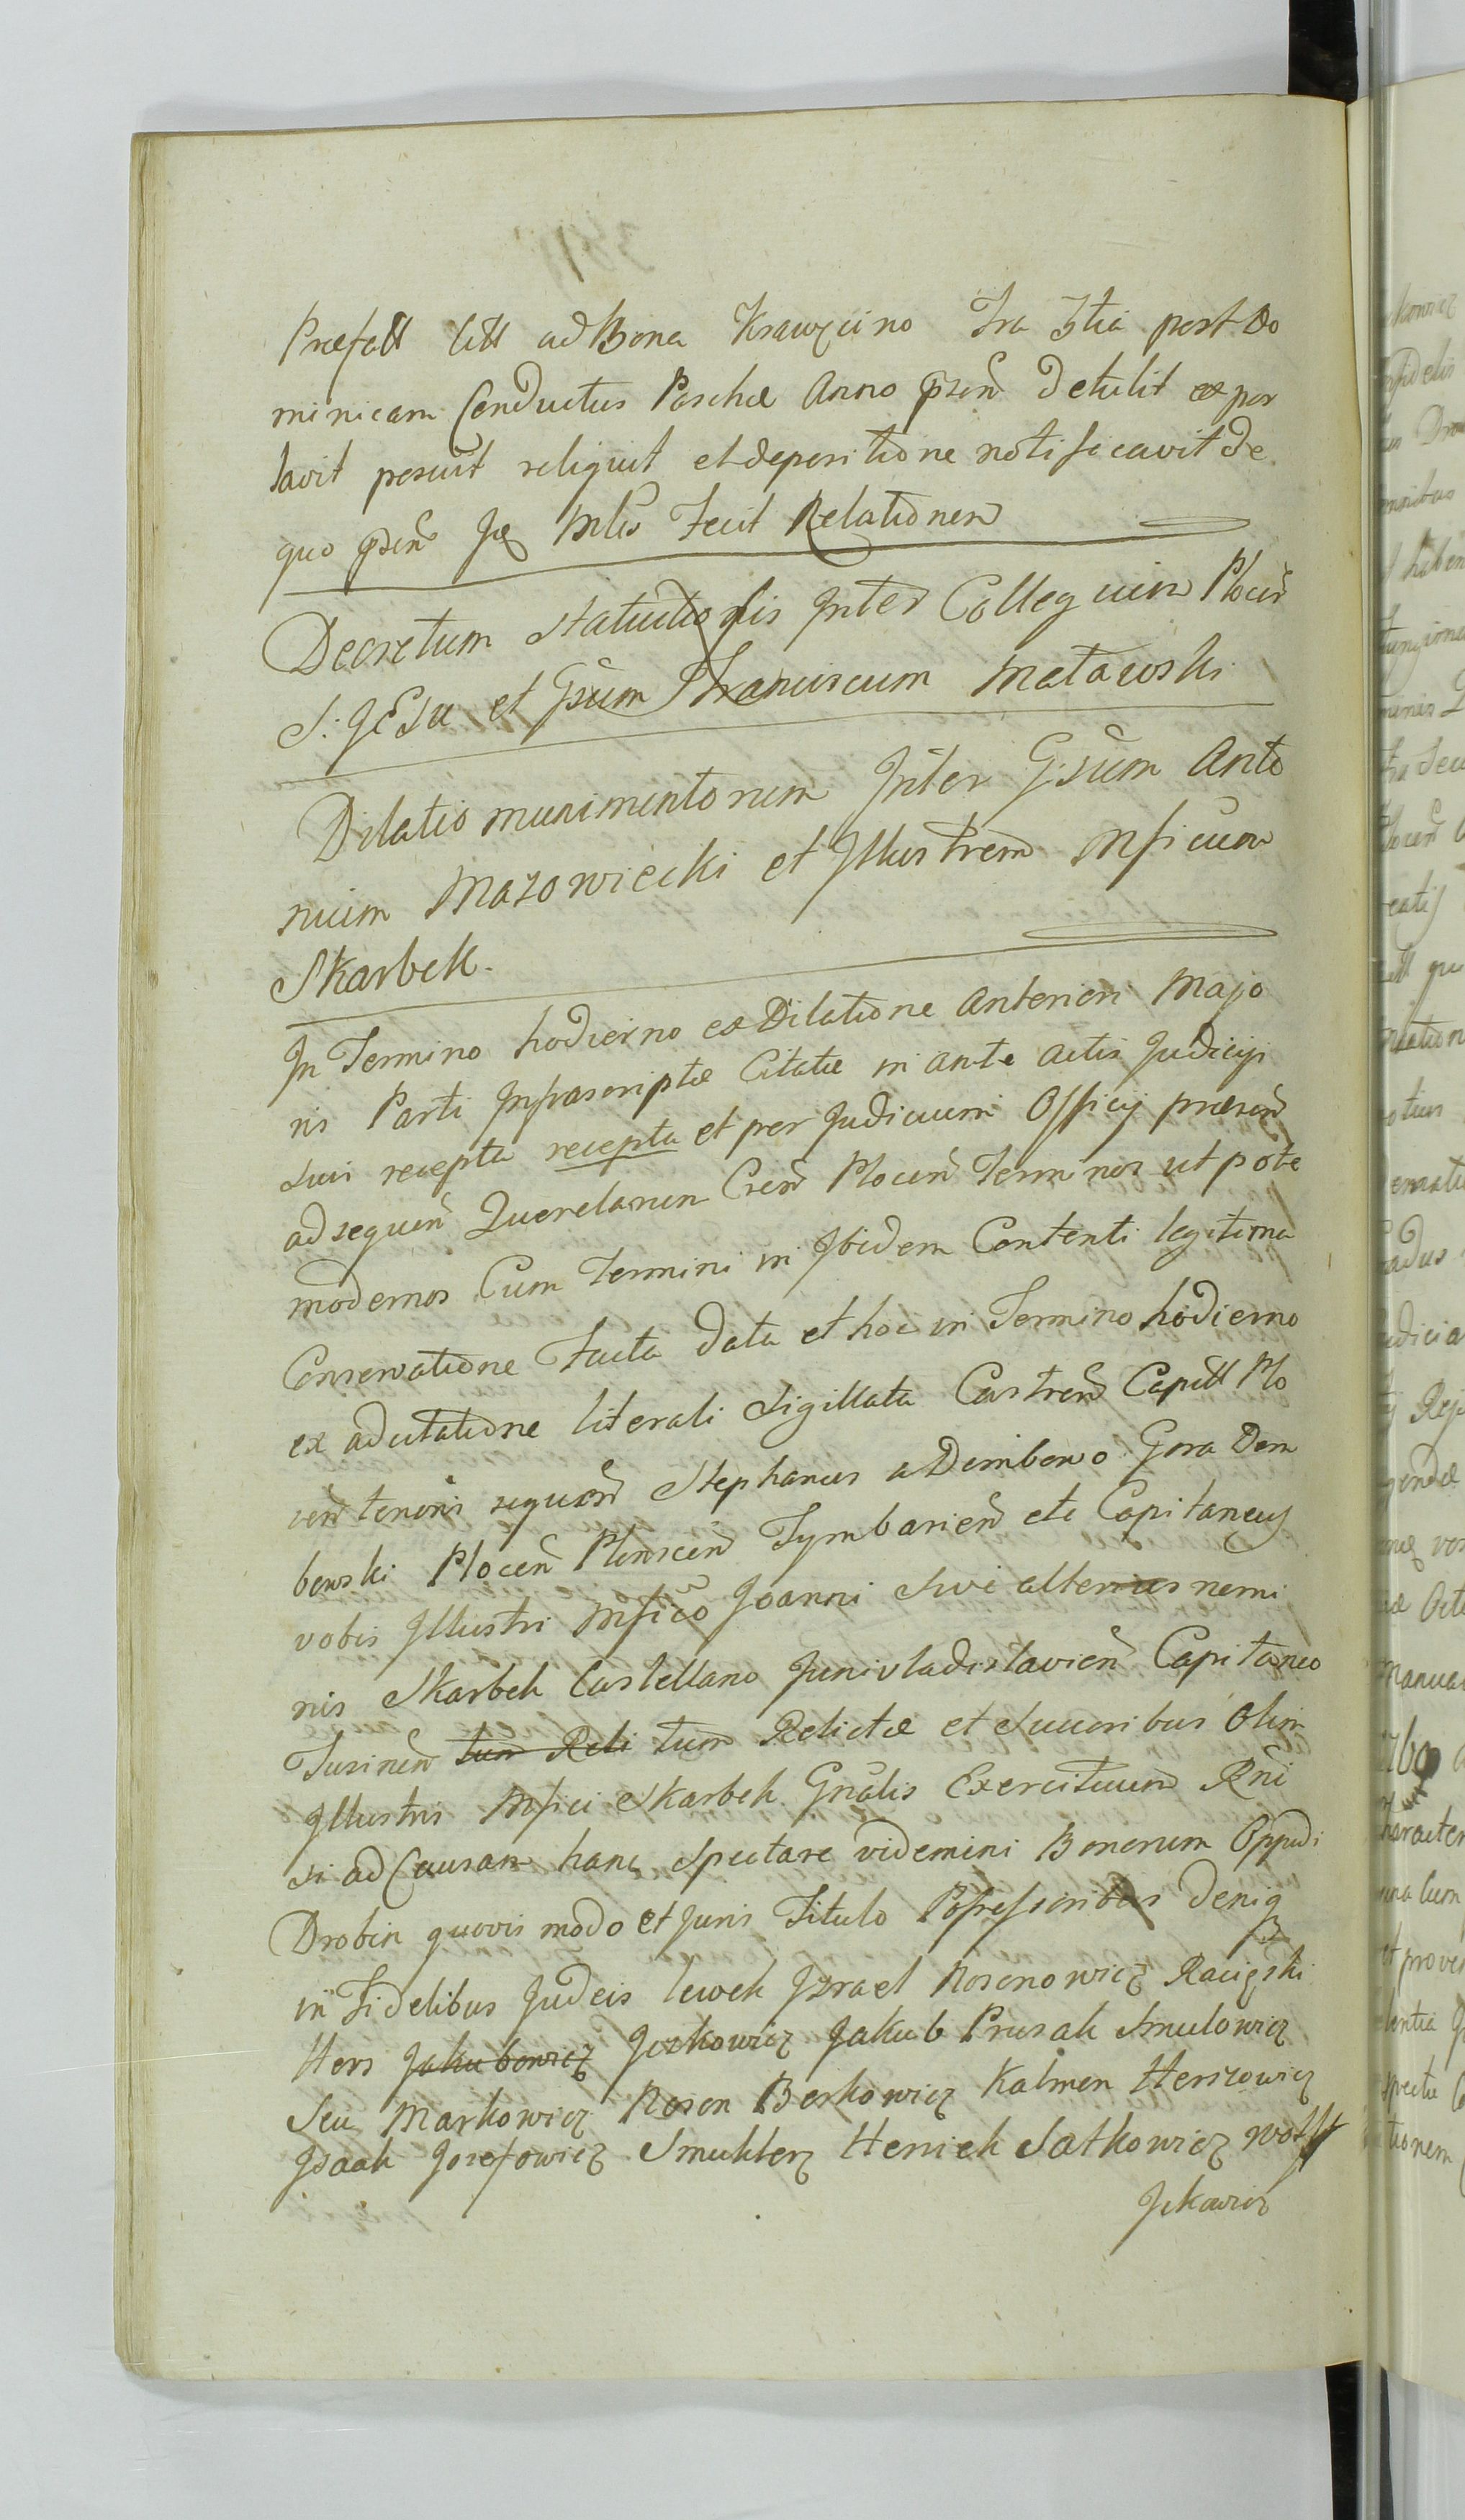 Præfatt litt ad Bona Krawęcino Fra 3tia post Do
minicam Conductus Paschæ Anno pzen detulit ex por
tavit posuit reliquit et depositione notificavit de
quo pzen Jq Mlis Fecit Relationem
Decretum statutionis Inter Collegium Plocen
S: JESU et Gsum Franciscum Matawski
Dilatio munimentorum Inter Gsum Anto
nium Mazowiecki et Illustrem Mficum
Skarbek.
In Termino hodierno ex Dilatione Anteriori Majo
ris Parti Infrascriptæ Citatæ in ante actis Judicijs
suis recepta recepta et per Judicium Officij præsen
ad sequen Querelarum Cren Plocen Terminos ut pote
modernos Cum Termini in Ibidem Contenti legitima
Conservatione Facta data et hoc in Termino hodierno
ex adcitatione literali Sigillata Castren Capitt Plo
cen tenoris sequen Stephanus a Dembowo Gora Dem
bowski Plocen Plonscen Tymbarien etc Capitaneus
vobis Illustri Mfico Joanni sive alterius nomi
nis Skarbek Castellano Junivladislavien Capitaneo
Tusinen tum Reli tum Relictæ et Succoribus Olim
Illustris Mfici Skarbek Gnalis Exercituum Rni
si ad Causam hanc Spectare videmini Bonorum Oppidi
Drobin quovis modo et Juris Titulo Possessoribus deniq
in Fidelibus Judeis lewek Izrael Nosonowicz Raciązki
Hers Jakubowicz Joskowicz Jakub Prusak Smulowicz
Seu Markowicz Noson Berkowicz Kalmen Herszowicz
Jsaak Josefowicz Smuklerz Heniek Satkowicz wolff
Jckowicz